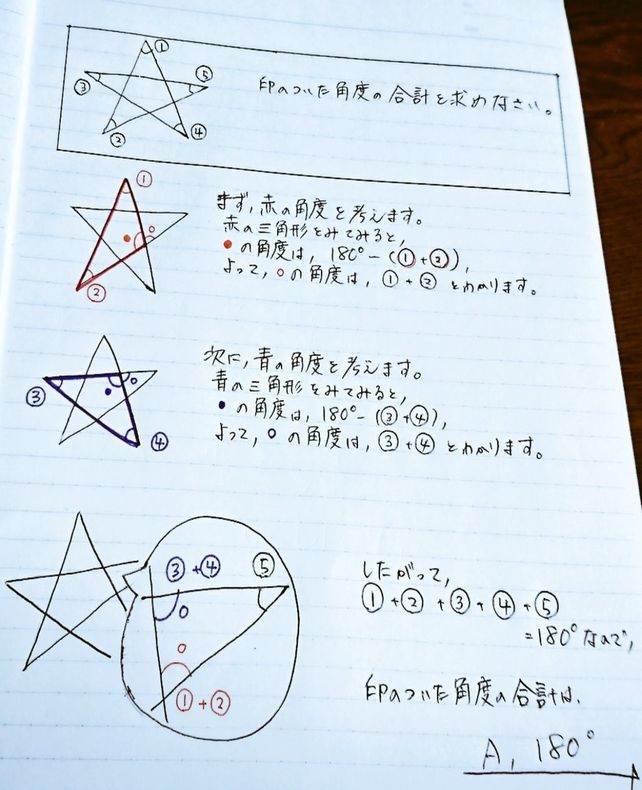 ①
③
⑤
②
④
印のついた角度の合計を求めなさい。
①
②
まず,赤の角度を考えます。
赤の三角形をみてみると,
●の角度は, 180°-(①+②),
よって, ○の角度は, ①+②とわかります。
③
④
次に,青の角度を考えます。
青の三角形をみてみると,
●の角度は, 180°-(③+④),
よって, ○の角度は, ③+④とわかります。
③+④
⑤
①+②
したがって,
①+②+③+④+⑤
=180°なので,
印のついた角度の合計は,
A, 180°